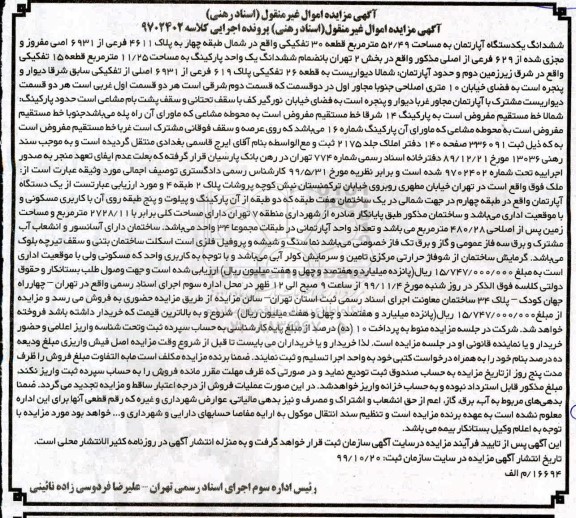 آگهی مزایده اموال غیرمنقول (اسناد رهنی)
آگهی مزایده اموال غیرمنقول(اسناد رهنی) پرونده اجرایی کلاسه ۹۷۰۲۴۰۲
ششدانگ یکدستگاه آپارتمان به مساحت ۵۲/۴۹ مترمربع قطعه ۳۰ تفکیکی واقع در شمال طبقه چهار به پلاک ۴۶۱۱ فرعی از ۶۹۳۱ اصی مفروز و
مجزی شده از ۶۲۹ فرعی از اصلی مذکور واقع در بخش ۲ تهران بانضمام ششدانگ یک واحد پارکینگ به مساحت ۱۱/۲۵ مترمربع قطعه ۱۵ تفکیکی
واقع در شرق زیرزمین دوم و حدود آپارتمان: شمالا دیواریست به قطعه ۲۶ تفکیکی پلاک ۶۱۹ فرعی از ۶۹۳۱ اصلی از تفکیکی سابق شرقا دیوار و
پنجره است به فضای خیابان ۱۰ متری اصلاحی جنوبا مجاور اول در دوقسمت که قسمت دوم شرقی است هر دو قسمت اول غربی است هر دو قسمت
دیواریست مشترک با آپارتمان مجاور غربا دیوار و پنجره است به فضای خیابان نورگیر کف با سقف تحتانی و سقف پشت بام مشاعی است حدود پارکینگ:
شمالا خط مستقیم مفروض است به پارکینگ ۱۴ شرقا خط مستقیم مفروض است به محوطه مشاعی که ماورای آن راه پله می‌باشدجنوبا خط مستقیم
مفروض است به محوطه مشاعی که ماورای آن پارکینگ شماره ۱۶ می‌باشد که روی عرصه و سقف فوقانی مشترک است غربا خط مستقیم مفروض است
به که ذیل ثبت ۳۳۶۰۹۱ صفحه ۱۴۰ دفتر املاک جلد ۲۱۷۵ ثبت و مع‌الواسطه بنام آقای ایرج قاسمی بغدادی منتقل گردیده است و به موجب سند
رهنی ۱۳۰۳۶ مورخ ۸۹/۱۲/۲۱ دفترخانه اسناد رسمی شماره ۷۷۴ تهران در رهن بانک پارسیان قرار گرفته که بعلت عدم ایفای تعهد منجر به صدور
اجراییه تحت شماره ۹۷۰۲۴۰۲ شده است و برابر نظریه مورخ ۹۹/۵/۳۱ کارشناس رسمی دادگستری توصیف اجمالی مورد وثیقه عبارت است از:
ملک فوق واقع است در تهران خیابان مطهری روبروی خیابان ترکمنستان نبش کوچه پروشات پلاک ۲ طبقه ۴ و مورد ارزیابی عبارتست از یک دستگاه
آپارتمان واقع در طبقه چهارم در جهت شمالی در یک ساختمان هفت طبقه که دو طبقه از آن پارکینگ و پیلوت و پنج طبقه روی آن با کاربری مسکونی و
با موقعیت اداری می‌باشد و ساختمان مذکور طبق پایانکار صادره از شهرداری منطقه ۷ تهران دارای مساحت کلی برابر با ۲۷۲۸/۱۱ مترمربع و مساحت
زمین پس از اصلاحی ۴۸۰/۲۸ مترمربع می باشد و تعداد واحد آپارتمانی در طبقات مجموعا ۳۴ واحد می‌باشد. ساختمان دارای آسانسور و انشعاب آب
مشترک و برق سه فاز عمومی و گاز و برق تک فاز خصوصی می‌باشد نما سنگ و شیشه و پروفیل فلزی است اسکلت ساختمان بتنی و سقف تیرچه بلوک
می‌باشد. گرمایش ساختمان از شوفاژ حرارتی مرکزی تامین و سرمایش کولر آبی می‌باشد و با توجه به کاربری واحد که مسکونی ولی با موقعیت اداری
است به مبلغ ۱۵/۷۴۷/۰۰۰/۰۰۰ ریال(پانزده میلیارد و هفتصد و چهل و هفت میلیون ریال) ارزیابی شده است و جهت وصول طلب بستانکار و حقوق
دولتی کلاسه فوق الذکر در روز شنبه مورخ ۹۹/۱۱/۴ از ساعت ۹ صبح الی ۱۲ ظهر در محل اداره سوم اجرای اسناد رسمی واقع در تهران - چهارراه
جهان کودک - پلاک ۳۴ ساختمان معاونت اجرای اسناد رسمی ثبت استان تهران - سالن مزایده از طریق مزایده حضوری به فروش می رسد و مزایده
از مبلغ ۱۵/۷۴۷/۰۰۰/۰۰۰ ریال(پانزده میلیارد و هفتصد و چهل و هفت میلیون ریال) شروع و به بالاترین قیمت که خریدار داشته باشد فروخته
خواهد شد. شرکت در جلسه مزایده منوط به پرداخت ۱۰ (ده) درصد از مبلغ پایه کارشناسی به حساب سپرده ثبت وتحت شناسه واریز اعلامی و حضور
خریدار و یا نماینده قانونی او در جلسه مزایده است. لذا خریدار و یا خریداران می بایست تا قبل از شروع وقت مزایده اصل فیش واریزی مبلغ ودیعه
ده درصد بنام خود را به همراه درخواست کتبی خود به واحد اجرا تسلیم و ثبت نمایند. ضمنا برنده مزایده مکلف است مابه التفاوت مبلغ فروش را ظرف
مدت پنج روز ازتاریخ مزایده به حساب صندوق ثبت تودیع نماید و در صورتی که ظرف مهلت مقرر مانده فروش را به حساب سپرده ثبت واریز نکند.
مبلغ مذکور قابل استرداد نبوده و به حساب خزانه واریزخواهدشد. در این صورت عملیات فروش از درجه اعتبار ساقط و مزایده تجدید می گردد. ضمنا
بدهی‌های مربوط به آب، برق، گاز، اعم از حق انشعاب و اشتراک و مصرف و نیز بدهی مالیاتی، عوارض شهرداری و غیره که رقم قطعی آنها برای این اداره
معلوم نشده است به عهده برنده مزایده است و تنظیم سند انتقال موکول به ارایه مفاصا حسابهای دارایی و شهرداری و... خواهد بود مورد مزایده با
توجه به اعلام وکیل بستانکار بیمه می باشد.
این آگهی پس از تایید فرآیند مزایده درسایت آگهی سازمان ثبت قرار خواهد گرفت و به منزله انتشار آگهی در روزنامه کثیر الانتشار محلی است.
تاریخ انتشار آگهی مزایده در سایت سازمان ثبت: ۹۹/۱۰/۲۰
۱۶۶۹۴/م الف
رئیس اداره سوم اجرای اسناد رسمی تهران - علیرضا فردوسی زاده نائینی